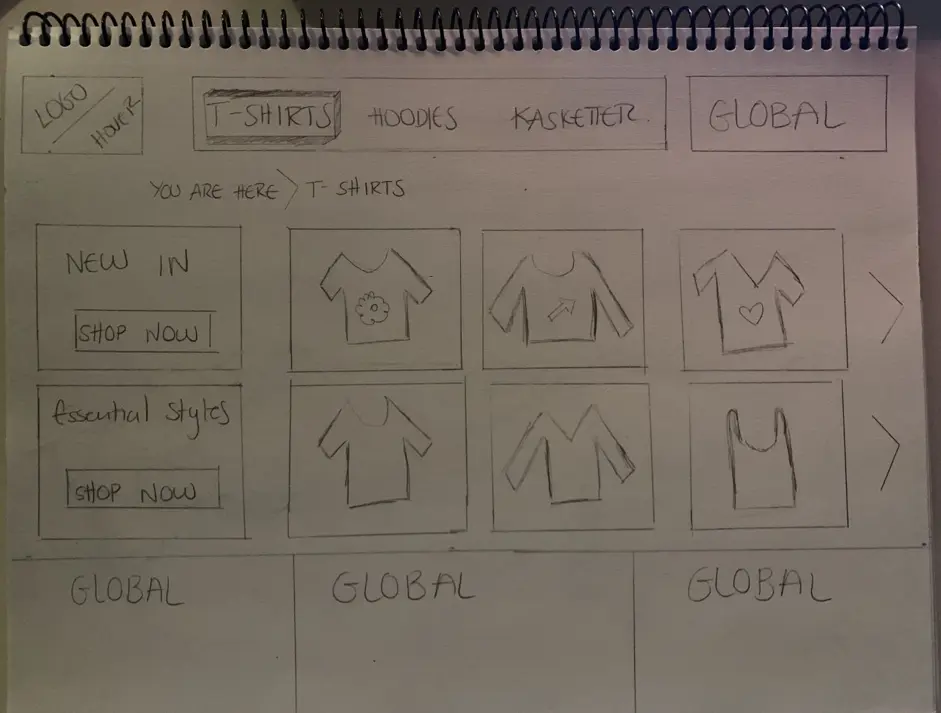 LOGO
HOVER
T-SHIRTS HOODIES KASKETTER
GLOBAL
YOU ARE HERE > T-SHIRTS
NEW IN
SHOP NOW
Essential Styles
SHOP NOW
GLOBAL GLOBAL GLOBAL